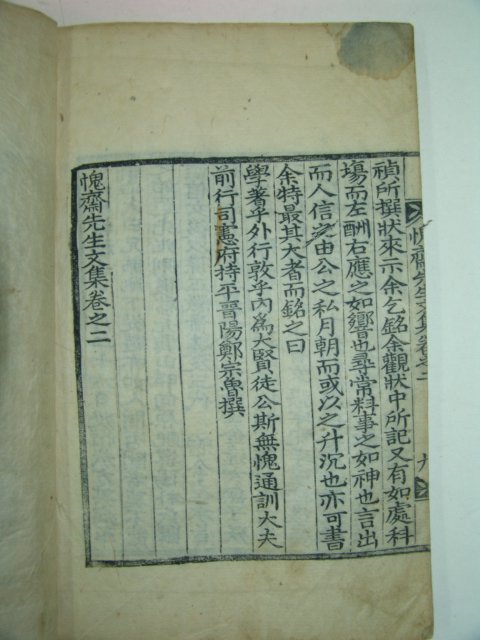 愧齋先生文集卷之二
禎所撰狀來示余乞銘余觀狀中所記又有如處科
塲而左酬右應之如響也尋常料事之如神也言出
而人信之由公之私月朝而或以之升沉也亦可書
余特最其大者而銘之曰
學著乎外行敦乎內爲大賢徒公斯無愧通訓大夫
前行司憲府持平晋陽鄭宗魯撰
愧齋先生文集卷之二